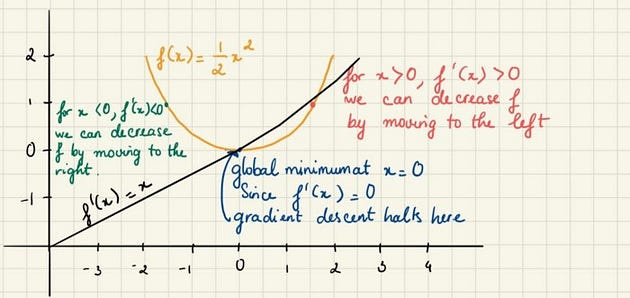 f(x) = 1/2 x^2
for x <0, f'(x)<0
we can decrease
f by moving to the
right.
for x>0, f'(x) >0
we can decrease f
by moving to the left
global minimum at x=0
Since f'(x) = 0
gradient descent halts here
f'(x) = x
2
1
0
-1
-3 -2 -1 0 1 2 3 4